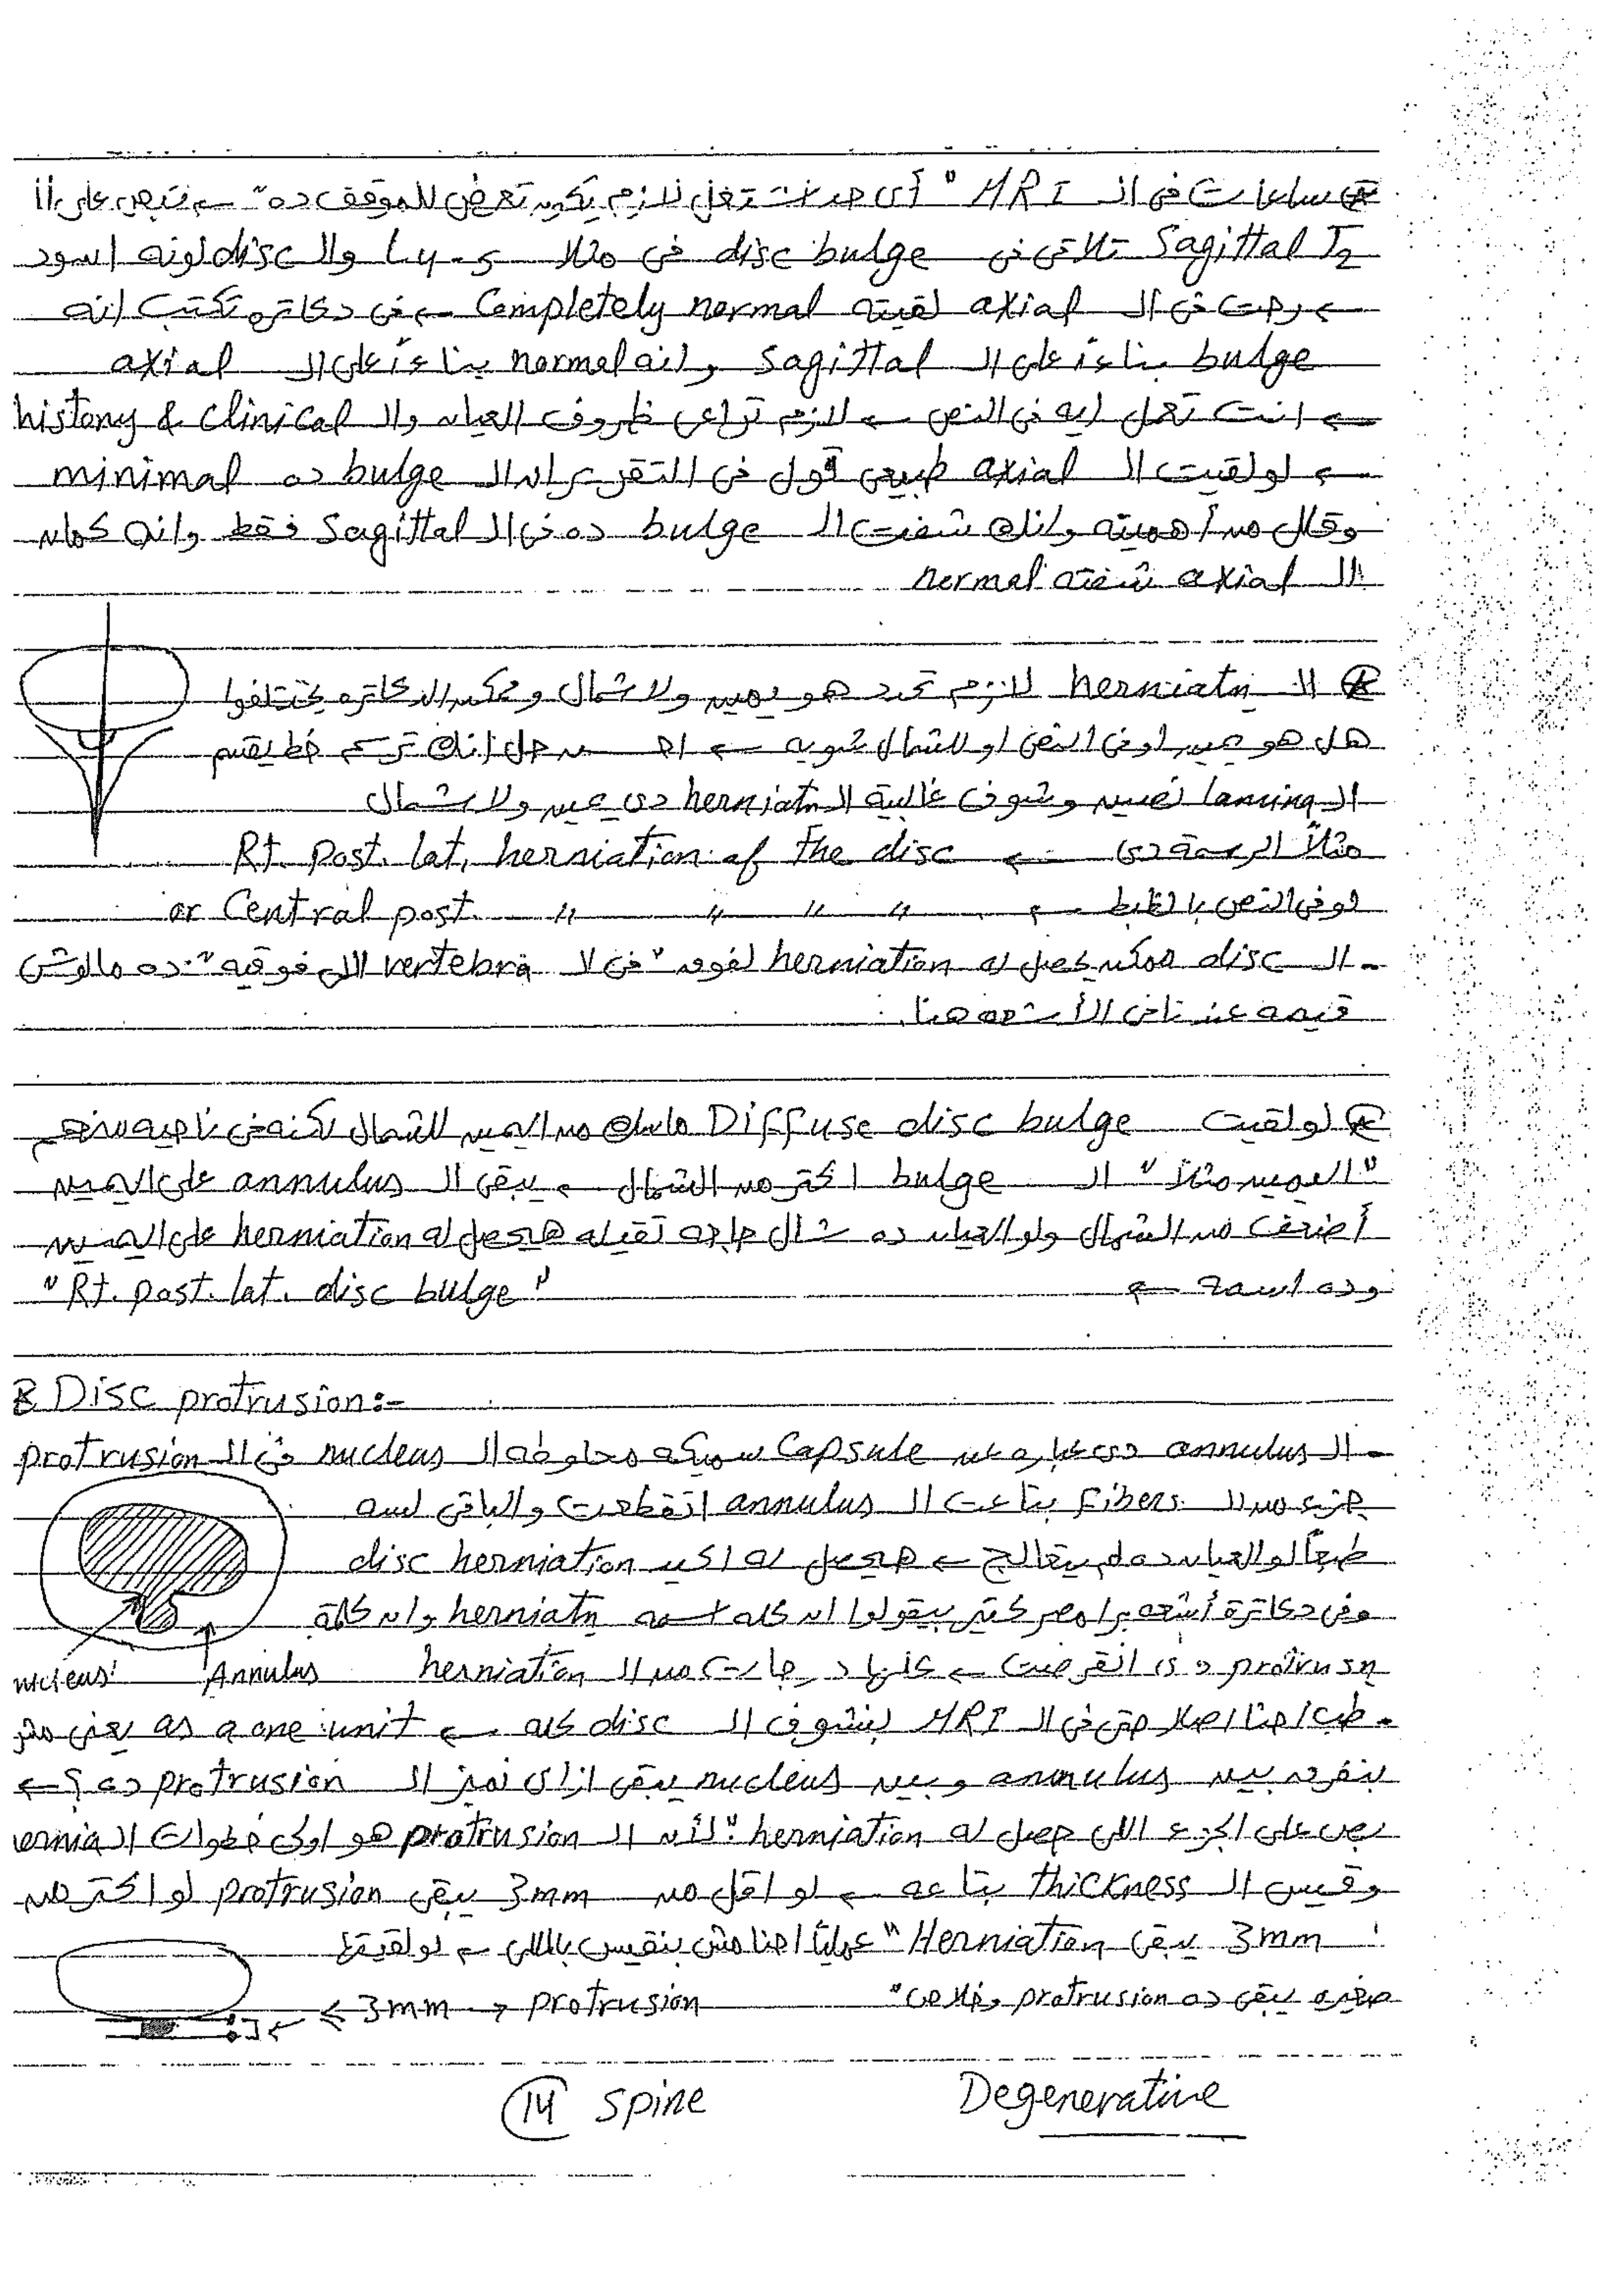 ⊛ ساعات فى الـ MRI "أى حد هيشتغل لازم يكون تعرض للموقف ده" ← تبص على الـ
Sagittal T2 تلاقى فى disc bulge فى مثلا L4-5 والـ disc لونه اسود
← رحت فى الـ axial لقيته Completely normal ← فى دكاتره تكتب انه
bulge بناءً على الـ Sagittal وانه normal بناءً على الـ axial
← انت تعمل ايه فى النص ← لازم تراعى ظروف العيان والـ history & clinical
← لو لقيت الـ axial طبيعى قول فى التقرير ان الـ bulge ده minimal
وقلل من أهميته وانك شفت الـ bulge ده فى الـ Sagittal فقط وانه كمان
الـ axial شفته normal
⊛ الـ herniatn لازم تحدد هو يمين ولا شمال وممكن الدكاتره يختلفوا
هل هو يمين او فى النص او للشمال شويه ← احسن حل إنك ترسم خط يقسم
الـ lamina نصين وشوف غالبية الـ herniatn دى يمين ولا شمال
مثلاً الرسمة دى ← Rt. post. lat. herniation of the disc
لو فى النص بالظبط ← or Central post. " " " "
- الـ disc ممكن يحصل له herniation لفوق "فى الـ vertebra اللى فوقيه" ده مالوش
قيمه عندنا فى الأشعه هنا.
⊛ لو لقيت Diffuse disc bulge ماسك من اليمين للشمال لكنه فى ناحيه منهم
"اليمين مثلاً" الـ bulge اكتر من الشمال ← يبقى الـ annulus على اليمين
أضعف من الشمال ولو العيان ده شال حاجه تقيله هيحصل له herniation على اليمين
وده اسمه ← "Rt. post. lat. disc bulge"
B Disc protrusion:-
- الـ annulus دى عباره عن Capsule سميكه محاوطه الـ nucleus فى الـ protrusion
جزء من الـ Fibers بتاعت الـ annulus اتقطعت والباقى لسه
طبعاً لو العيان ده لم يتعالج ← هيحصل له اكيد disc herniation
وفى دكاترة أشعه برا مصر كتير بيقولوا ان كله اسمه herniatn وان كلمة
protrusn دى انقرضت ← كلها درجات من الـ herniation
nucleus Annulus
- طب احنا اصلا حتى فى الـ MRI بنشوف الـ disc كله ← as a one unit يعنى مش
بنفرق بين annulus وبين nucleus يبقى ازاى نميز الـ protrusion ده ؟ ←
بص على الجزء اللى حصل له herniation "لأن الـ protrusion هو اولى خطوات الـ ernia
وقيس الـ thickness بتاعه ← لو اقل من 3mm يبقى protrusion لو اكتر من
3mm يبقى Herniation "عملياً احنا مش بنقيس بالمللى ← لو لقيتها
صغيره يبقى ده protrusion وخلاص"
< 3mm → protrusion
14 Spine Degenerative